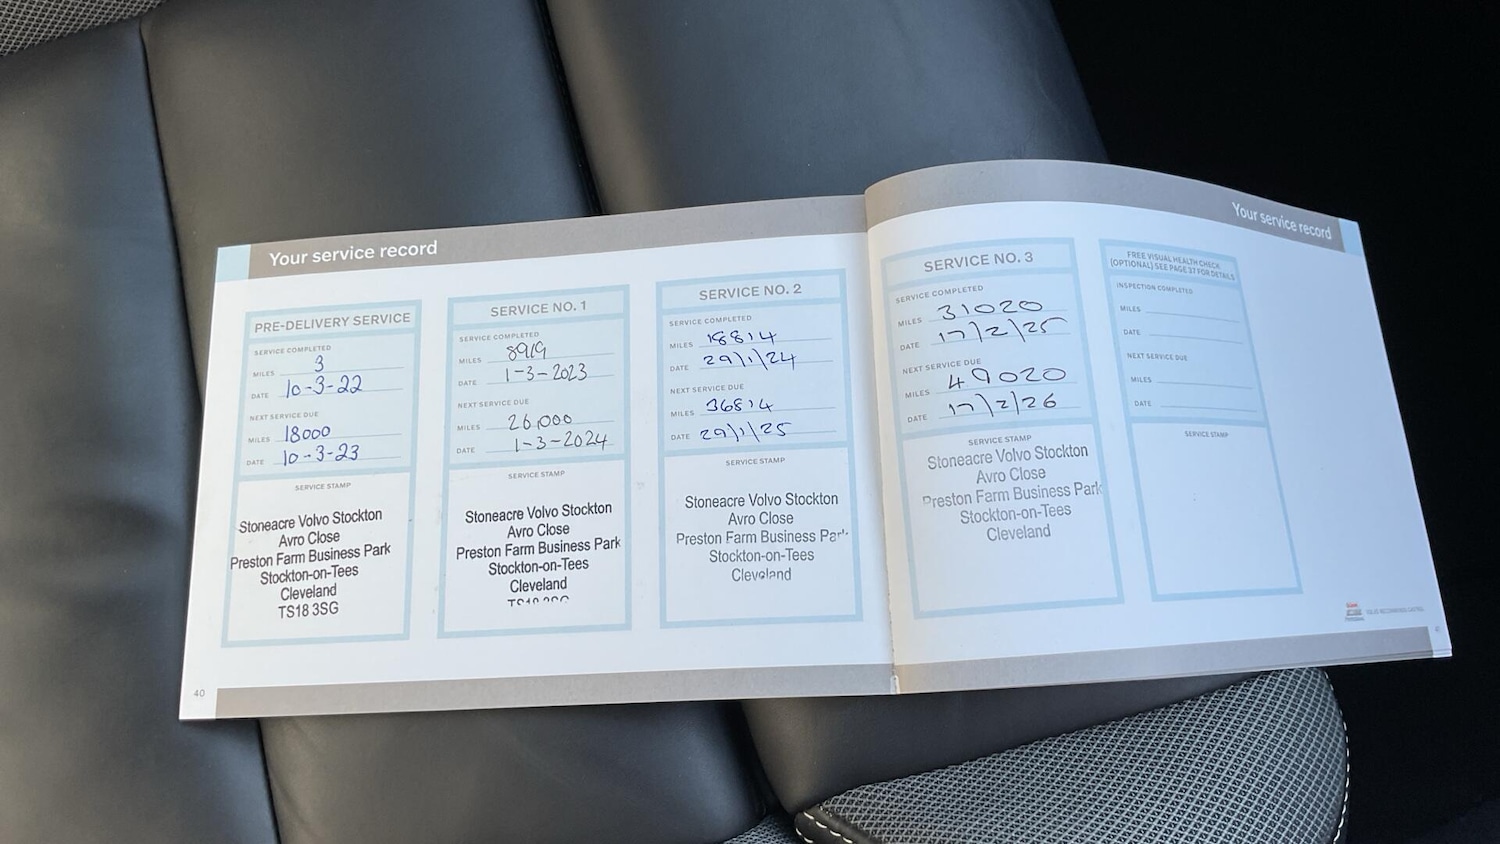 Your service record
PRE-DELIVERY SERVICE
SERVICE COMPLETED
MILES 3
DATE 10-3-22
NEXT SERVICE DUE
MILES 18000
DATE 10-3-23
SERVICE STAMP
Stoneacre Volvo Stockton
Avro Close
Preston Farm Business Park
Stockton-on-Tees
Cleveland
TS18 3SG
SERVICE NO. 1
SERVICE COMPLETED
MILES 8919
DATE 1-3-2023
NEXT SERVICE DUE
MILES 26,000
DATE 1-3-2024
SERVICE STAMP
Stoneacre Volvo Stockton
Avro Close
Preston Farm Business Park
Stockton-on-Tees
Cleveland
SERVICE NO. 2
SERVICE COMPLETED
MILES 18814
DATE 29/1/24
NEXT SERVICE DUE
MILES 36814
DATE 29/1/25
SERVICE STAMP
Stoneacre Volvo Stockton
Avro Close
Preston Farm Business Park
Stockton-on-Tees
Cleveland
40
Your service record
SERVICE NO. 3
SERVICE COMPLETED
MILES 31020
DATE 17/2/25
NEXT SERVICE DUE
MILES 49020
DATE 17/2/26
SERVICE STAMP
Stoneacre Volvo Stockton
Avro Close
Preston Farm Business Park
Stockton-on-Tees
Cleveland
FREE VISUAL HEALTH CHECK
(OPTIONAL) SEE PAGE 37 FOR DETAILS
INSPECTION COMPLETED
MILES
DATE
NEXT SERVICE DUE
MILES
DATE
SERVICE STAMP